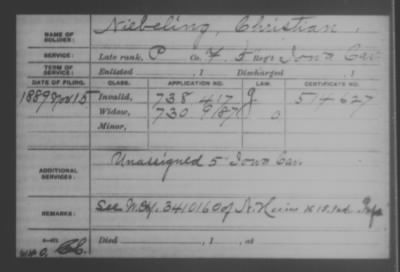 NAME OF SOLDIER: Niebeling, Christian,
SERVICE: Late rank, P Co. H, 5" Reg't Iowa Cav
TERM OF SERVICE: Enlisted , 1 Discharged , 1
DATE OF FILING. CLASS. APPLICATION NO. LAW. CERTIFICATE NO.
1889 Nov 15 Invalid, 738 417 J 514 627
Widow, 730 987 O
Minor,
ADDITIONAL SERVICES: Unassigned 5 Iowa Cav.
REMARKS: See N.W. 3410160 of Heirs Ind.
Died , 1 , at